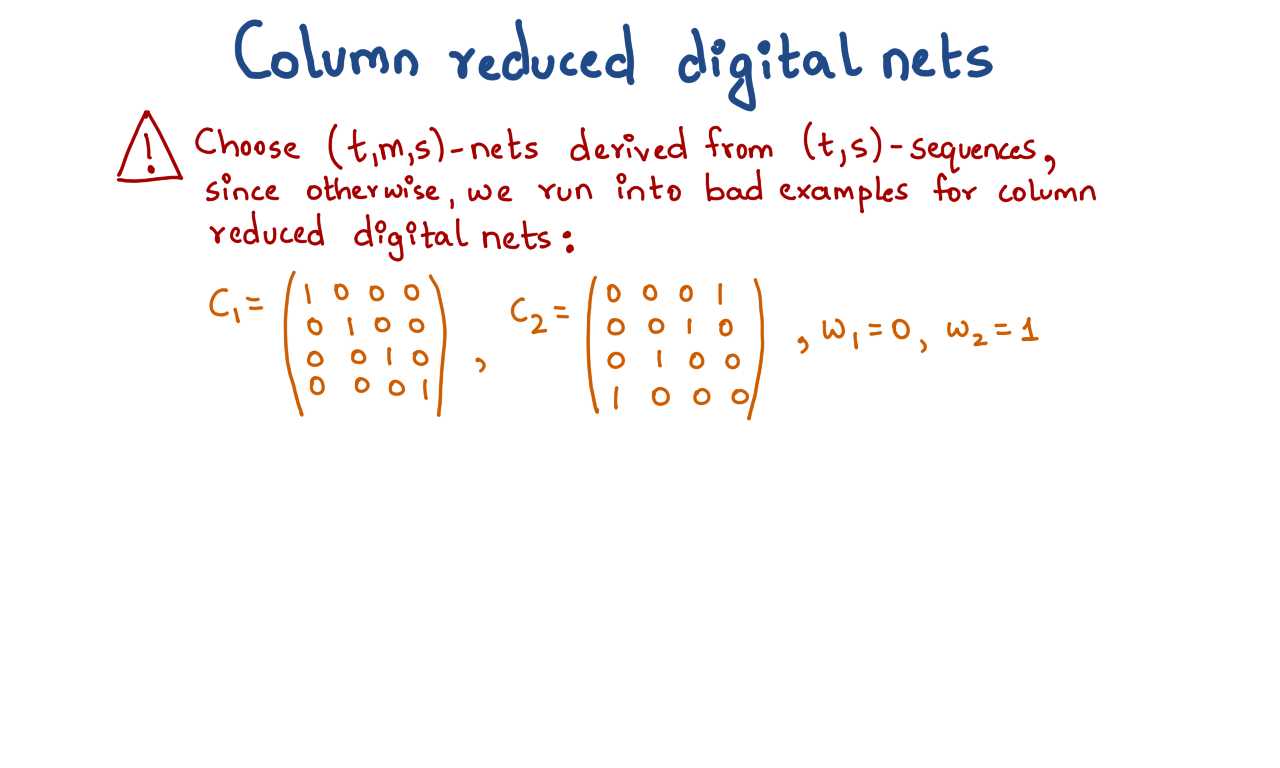 Column reduced digital nets
! Choose (t,m,s)-nets derived from (t,s)-sequences,
since otherwise, we run into bad examples for column
reduced digital nets:
C₁ = (1 0 0 0
0 1 0 0
0 0 1 0
0 0 0 1) , C₂ = (0 0 0 1
0 0 1 0
0 1 0 0
1 0 0 0) , w₁ = 0, w₂ = 1